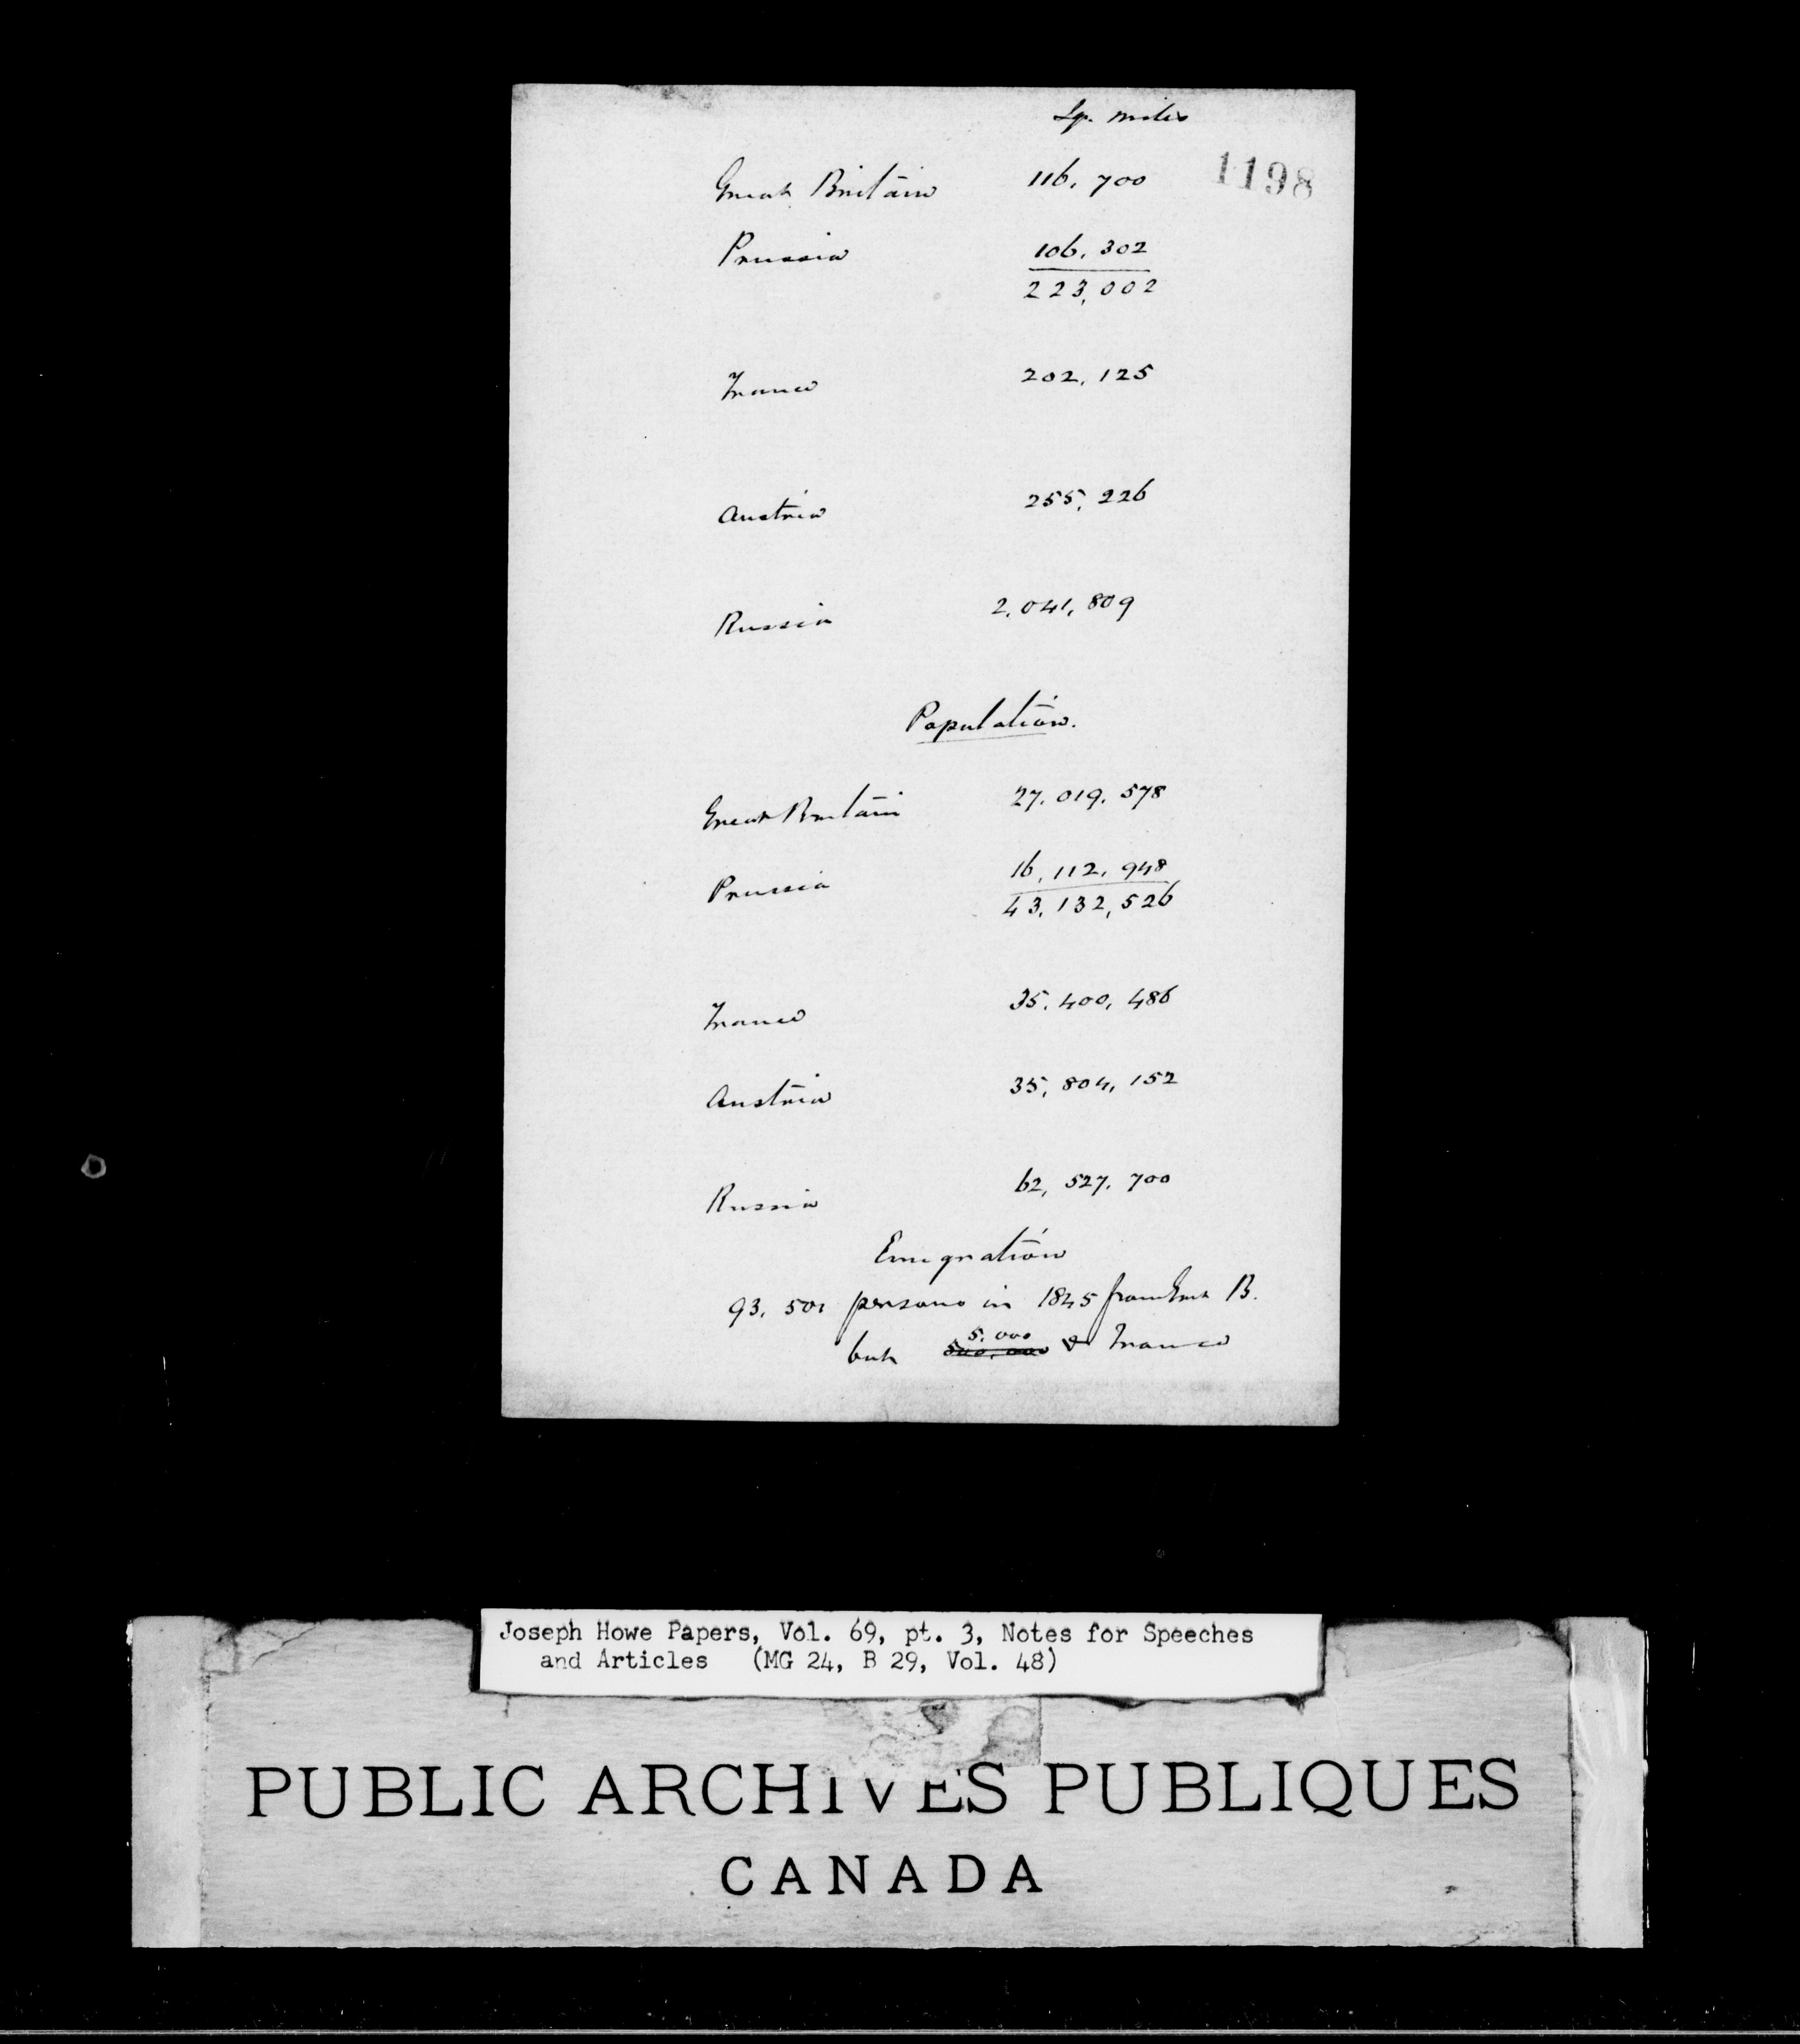 Sq. miles
1198
Great Britain 116,700
Prussia 106,302
223,002
France 202,125
Austria 255,226
Russia 2,041,809
Population.
Great Britain 27.019.578
Prussia 16,112,948
43,132,526
France 35,400,486
Austria 35,804,152
Russia 62,527,700
Emigration
93,501 persons in 1845 from Great B.
5,000
but 500,000 France
Joseph Howe Papers, Vol. 69, pt. 3, Notes for Speeches
and Articles (MG 24, B 29, Vol. 48)
PUBLIC ARCHIVES PUBLIQUES
CANADA